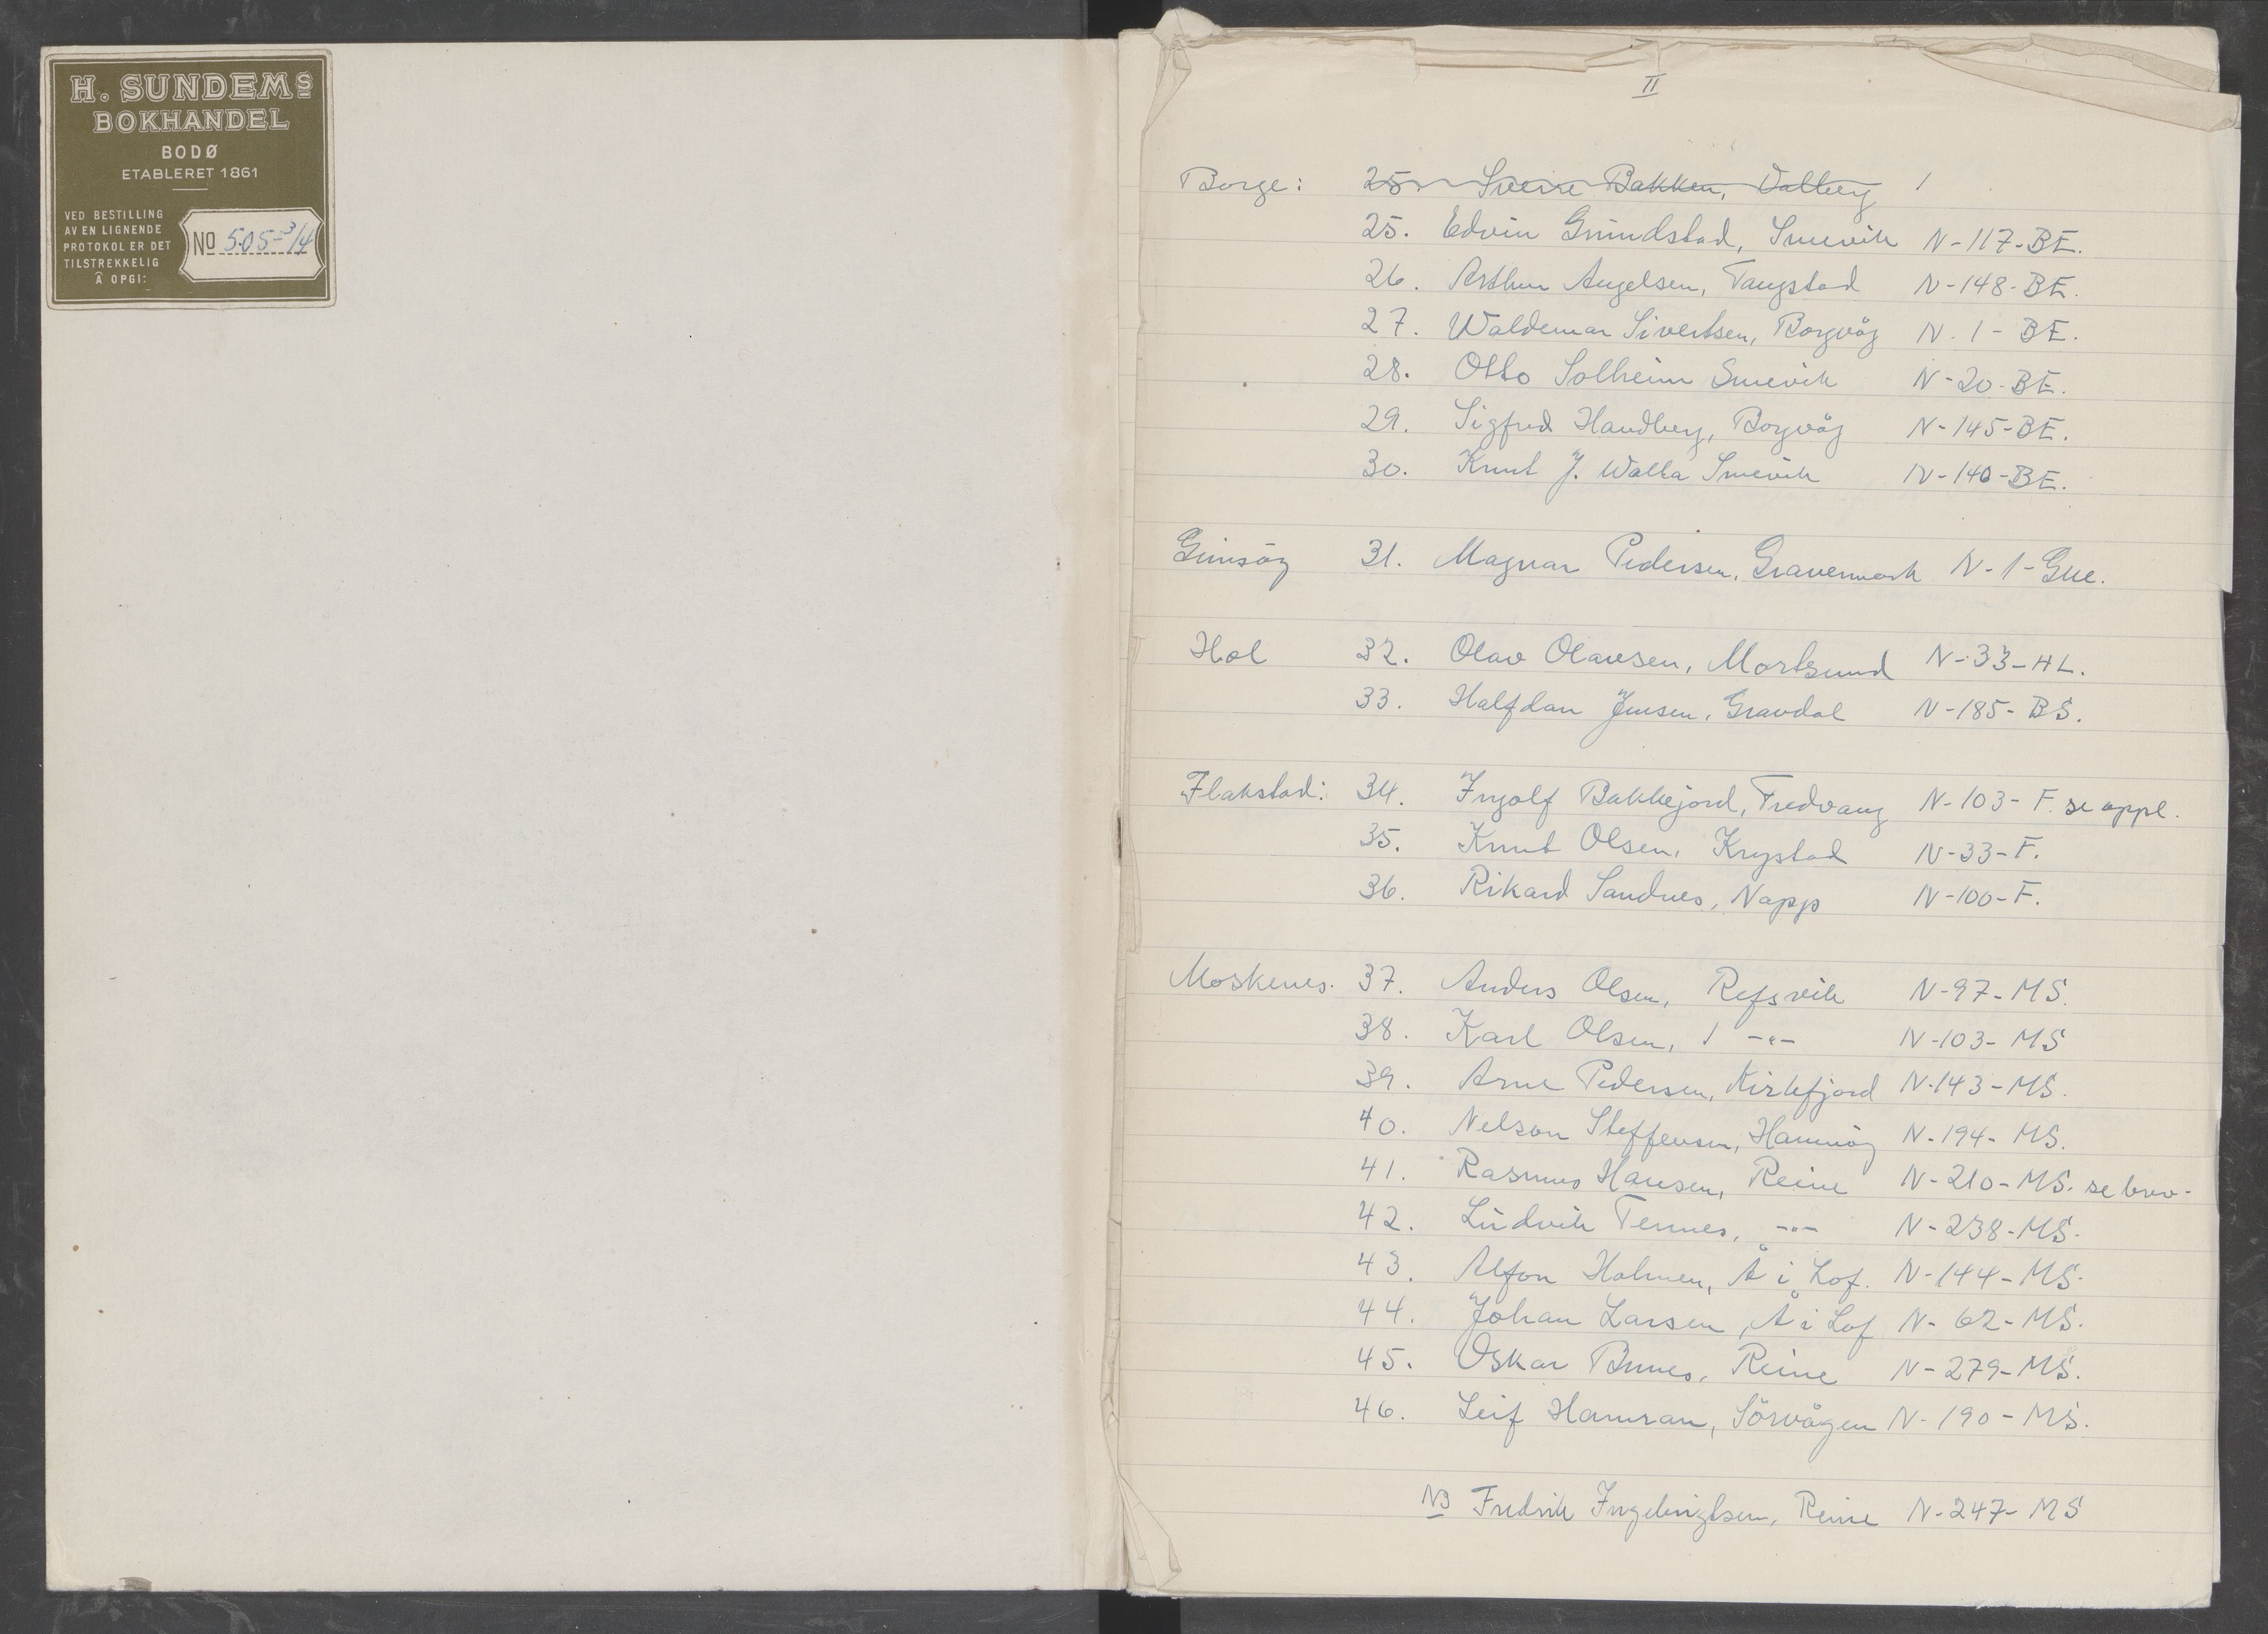 H. SUNDEMS
BOKHANDEL
BODØ
ETABLERET 1861
VED BESTILLING
AV EN LIGNENDE
PROTOKOL ER DET
TILSTREKKELIG
Å OPGI:
No 505-3/4
II
Borge: 25. Sverre Bakken, Valberg 1
25. Edvin Grundstad, Smevik N-117-BE.
26. Arthur Angelsen, Tangstad N-148-BE.
27. Waldemar Sivertsen, Borgvåg N-1-BE.
28. Otto Solheim Smevik N-20-BE.
29. Sigfred Handberg, Borgvåg N-145-BE.
30. Knut J. Walla Smevik N-140-BE.
Gimsöy 31. Magnar Pedersen, Gravermark N-1-Gue.
Hol 32. Olav Olavsen, Mortsund N-33-HL.
33. Halfdan Jensen, Gravdal N-185-BS.
Flakstad: 34. Ingolf Bakkejord, Fredvang N-103-F. se oppl.
35. Knut Olsen, Krystad N-33-F.
36. Rikard Sandnes, Napp N-100-F.
Moskenes. 37. Anders Olsen, Refsvik N-97-MS.
38. Karl Olsen, 1 -"- N-103-MS
39. Arne Pedersen, Kirkefjord N-143-MS.
40. Nelson Steffensen, Hamnöy N-194-MS.
41. Rasmus Hansen, Reine N-210-MS. se brev-
42. Ludvik Tennes, -"- N-238-MS.
43. Alfon Holmen, Å i Lof. N-144-MS.
44. Johan Larsen, Å i Lof N-62-MS.
45. Oskar Bunes, Reine N-279-MS.
46. Leif Hamran, Sörvågen N-190-MS.
NB Fredrik Ingebrigtsen, Reine N-247-MS